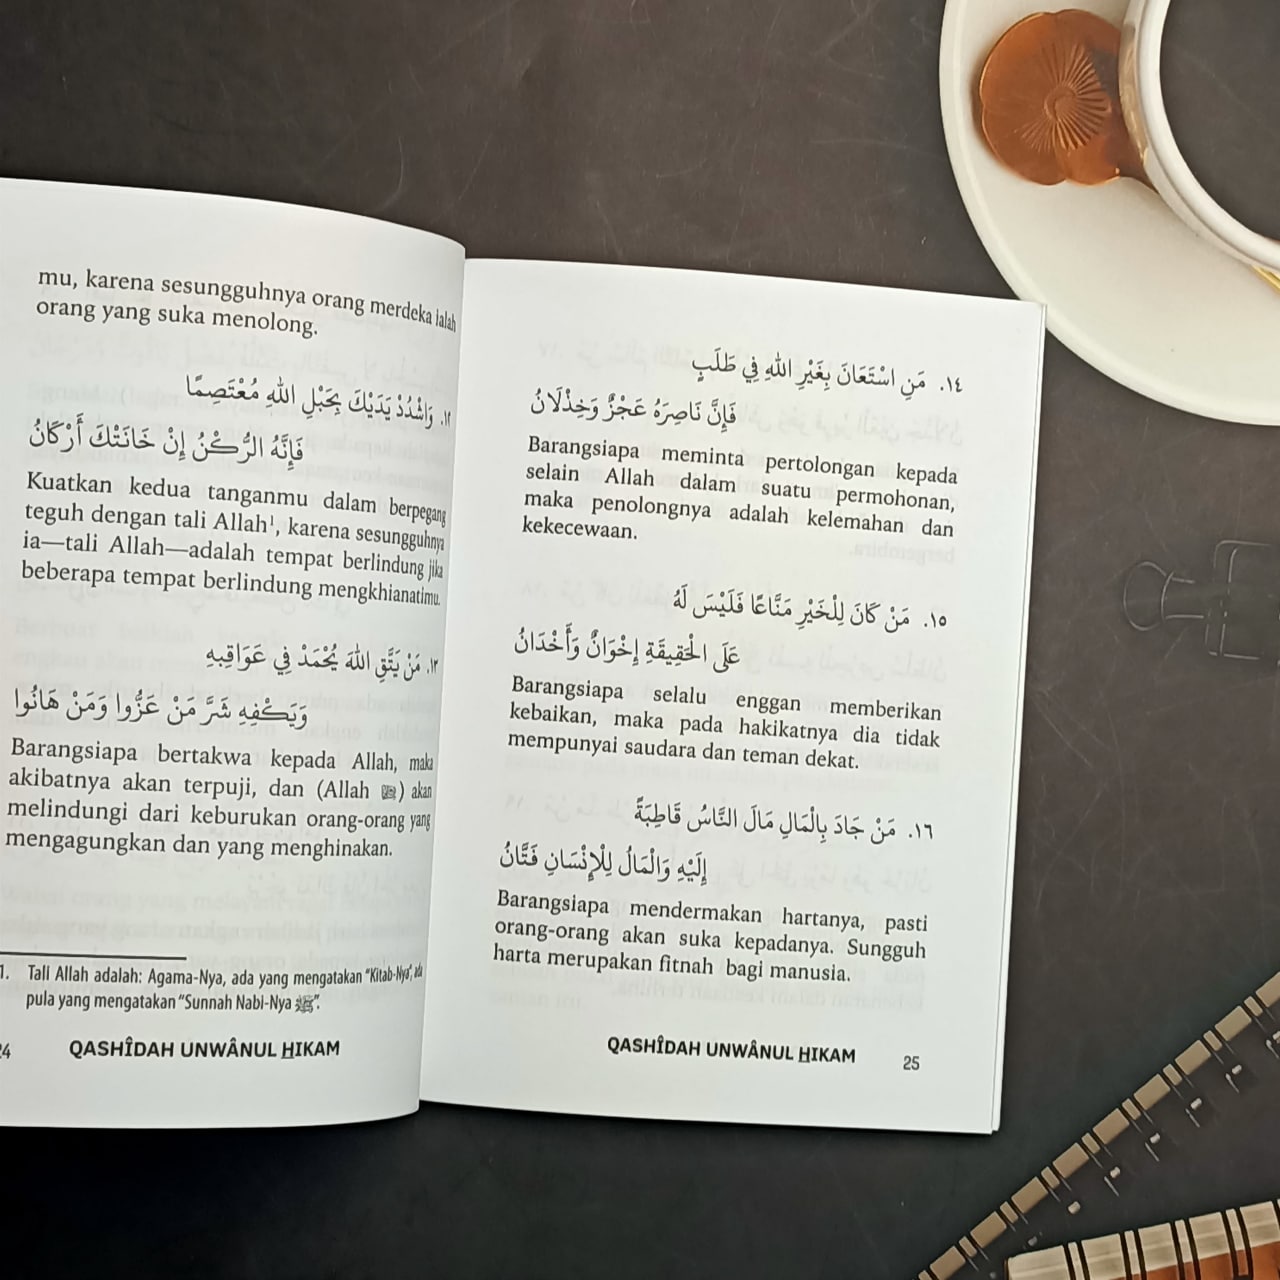 mu, karena sesungguhnya orang merdeka ialah
orang yang suka menolong.
١٢. وَاشْدُدْ يَدَيْكَ بِحَبْلِ اللهِ مُعْتَصِمًا
فَإِنَّهُ الرُّكْنُ إِنْ خَانَتْكَ أَرْكَانُ
Kuatkan kedua tanganmu dalam berpegang
teguh dengan tali Allah¹, karena sesungguhnya
ia—tali Allah—adalah tempat berlindung jika
beberapa tempat berlindung mengkhianatimu.
١٣. مَنْ يَتَّقِ اللهَ يُحْمَدْ فِي عَوَاقِبِهِ
وَيَكْفِهِ شَرَّ مَنْ عَزُّوا وَمَنْ هَانُوا
Barangsiapa bertakwa kepada Allah, maka
akibatnya akan terpuji, dan (Allah ﷻ) akan
melindungi dari keburukan orang-orang yang
mengagungkan dan yang menghinakan.
1. Tali Allah adalah: Agama-Nya, ada yang mengatakan “Kitab-Nya”, ada
pula yang mengatakan “Sunnah Nabi-Nya ﷺ”.
24 QASHÎDAH UNWÂNUL HIKAM
١٤. مَنِ اسْتَعَانَ بِغَيْرِ اللهِ فِي طَلَبٍ
فَإِنَّ نَاصِرَهُ عَجْزٌ وَخِذْلَانُ
Barangsiapa meminta pertolongan kepada
selain Allah dalam suatu permohonan,
maka penolongnya adalah kelemahan dan
kekecewaan.
١٥. مَنْ كَانَ لِلْخَيْرِ مَنَّاعًا فَلَيْسَ لَهُ
عَلَى الْحَقِيقَةِ إِخْوَانٌ وَأَخْدَانُ
Barangsiapa selalu enggan memberikan
kebaikan, maka pada hakikatnya dia tidak
mempunyai saudara dan teman dekat.
١٦. مَنْ جَادَ بِالْمَالِ مَالَ النَّاسُ قَاطِبَةً
إِلَيْهِ وَالْمَالُ لِلْإِنْسَانِ فَتَّانُ
Barangsiapa mendermakan hartanya, pasti
orang-orang akan suka kepadanya. Sungguh
harta merupakan fitnah bagi manusia.
QASHÎDAH UNWÂNUL HIKAM 25